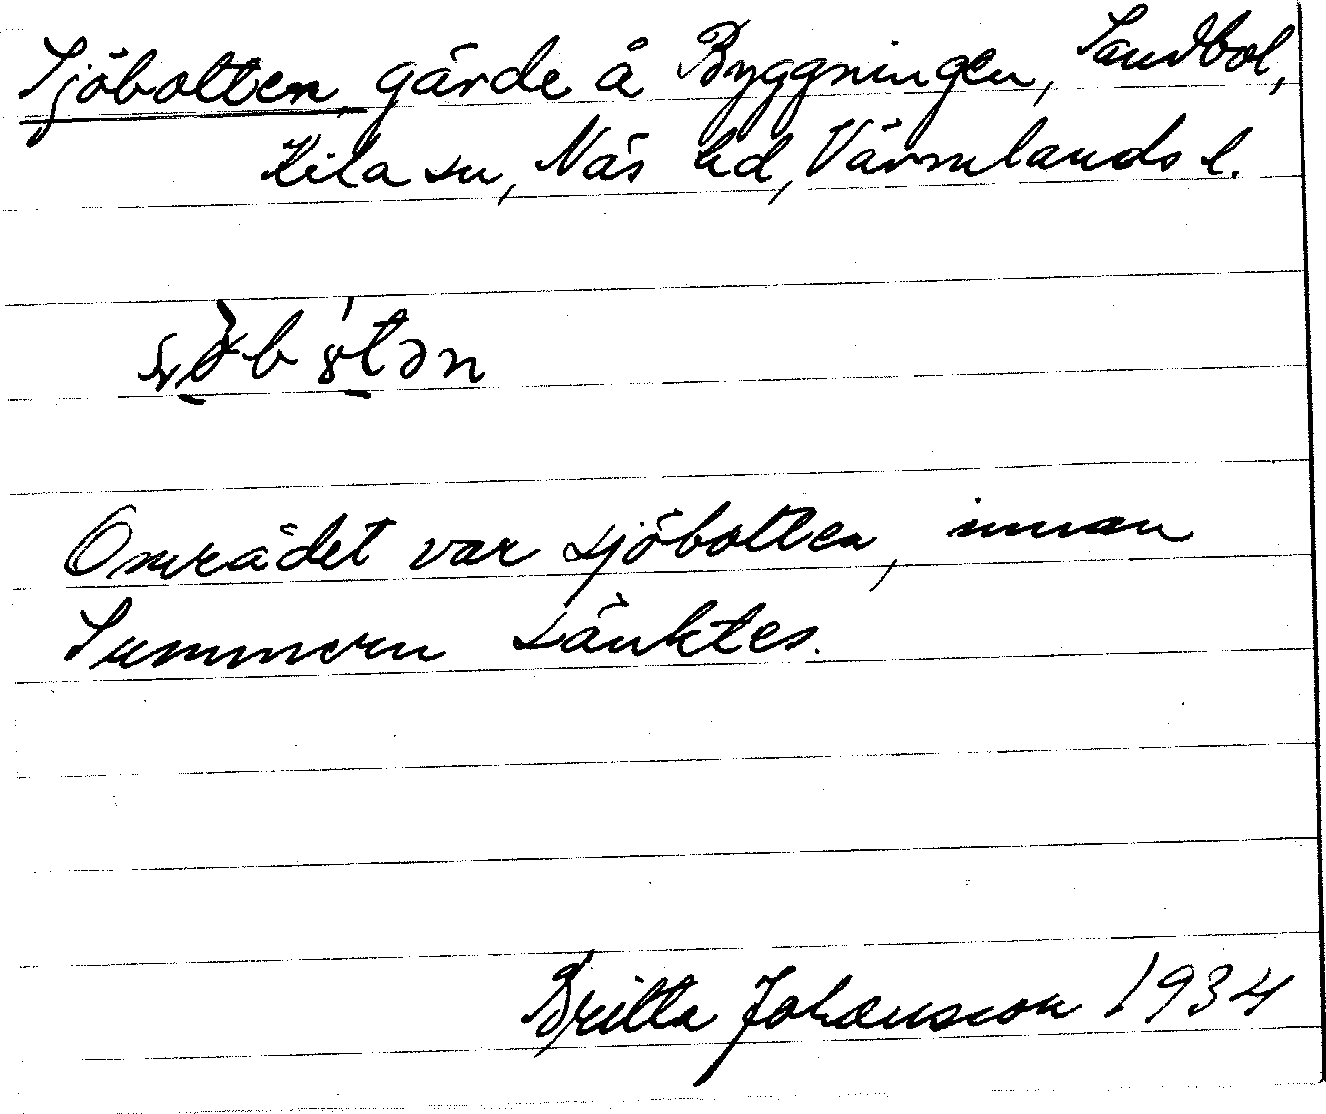 Sjöbotten, gärde å Byggningen, Sandbol,
Kila sn, Näs hd, Värmlands l.
Området var sjöbotten, innan
Summern sänktes.
Britta Johansson 1934